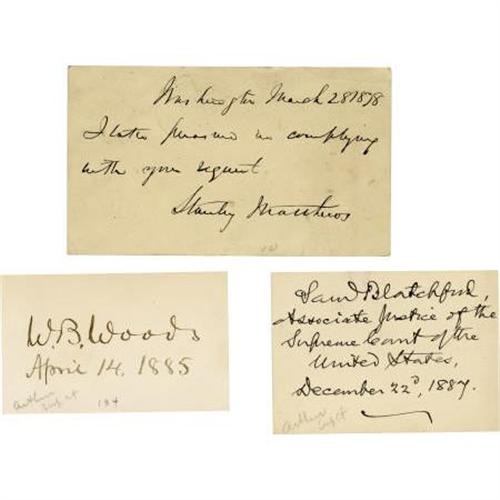 Washington March 28 1878
I take pleasure in complying
with your request
Stanley Matthews
W.B. Woods
April 14, 1885
arthur
sup ct
184
Saml Blatchford,
Associate Justice of the
Supreme Court of the
United States,
December 22d, 1887.
arthur
sup ct